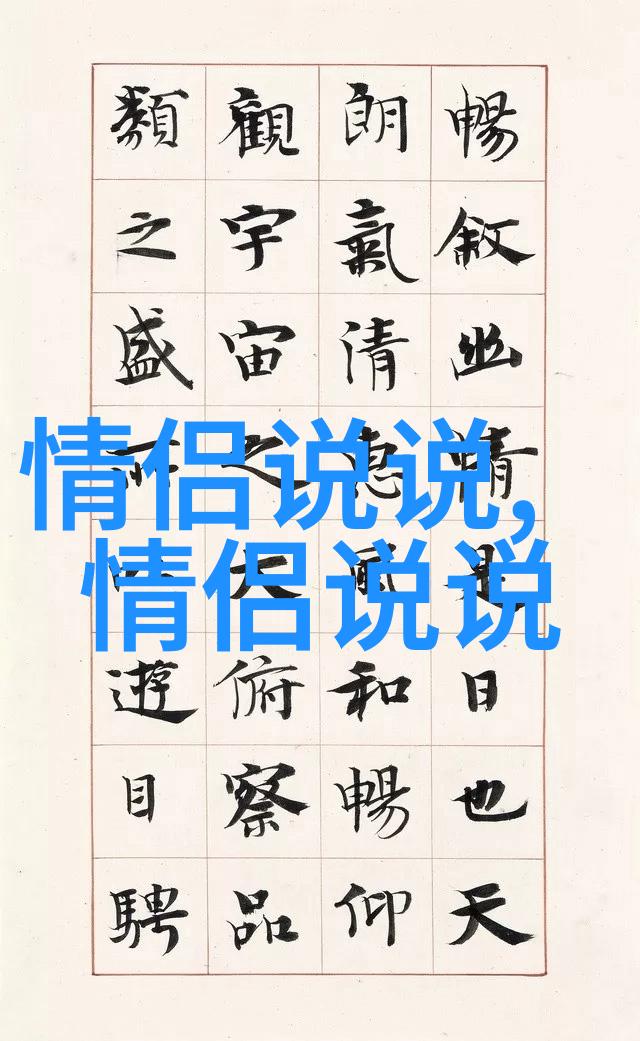 暢敘幽情是日也天
朗氣清惠風和暢仰
觀宇宙之大俯察品
類之盛所遊目騁
情侣说说,
情侣说说